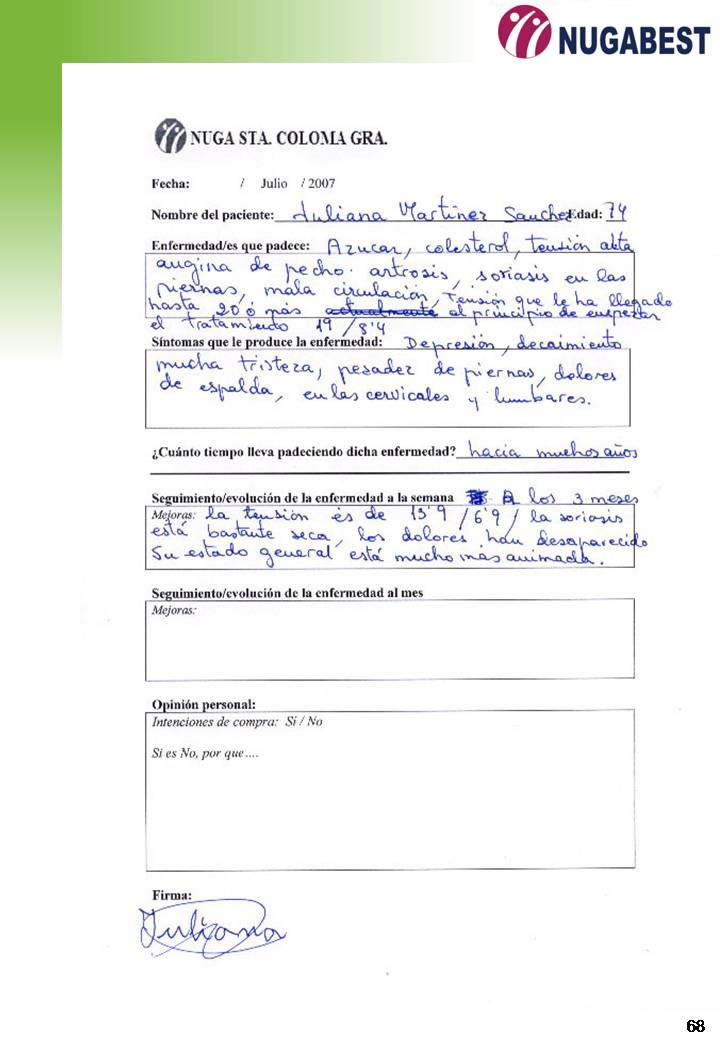 NUGABEST
NUGA STA. COLOMA GRA.
Fecha: / Julio / 2007
Nombre del paciente: Juliana Martinez Sanchez Edad: 74
Enfermedad/es que padece: Azucar, colesterol, tensión alta
augina de pecho. artrosis, soriasis en las
piernas, mala circulación, Tensión que le ha llegado
hasta 20 ó más actualmente al principio de empezar
el tratamiento 19 / 8'4
Síntomas que le produce la enfermedad: Depresión, decaimiento
mucha tristeza, pesadez de piernas, dolores
de espalda, en las cervicales y lumbares.
¿Cuánto tiempo lleva padeciendo dicha enfermedad? hacia muchos años
Seguimiento/evolución de la enfermedad a la semana A los 3 meses
Mejoras: la tensión és de 13'9 / 6'9 / la soriasis
está bastante seca, los dolores han desaparecido
Su estado general está mucho más animada.
Seguimiento/evolución de la enfermedad al mes
Mejoras:
Opinión personal:
Intenciones de compra: Si / No
Si es No, por que....
Firma:
Juliana
68